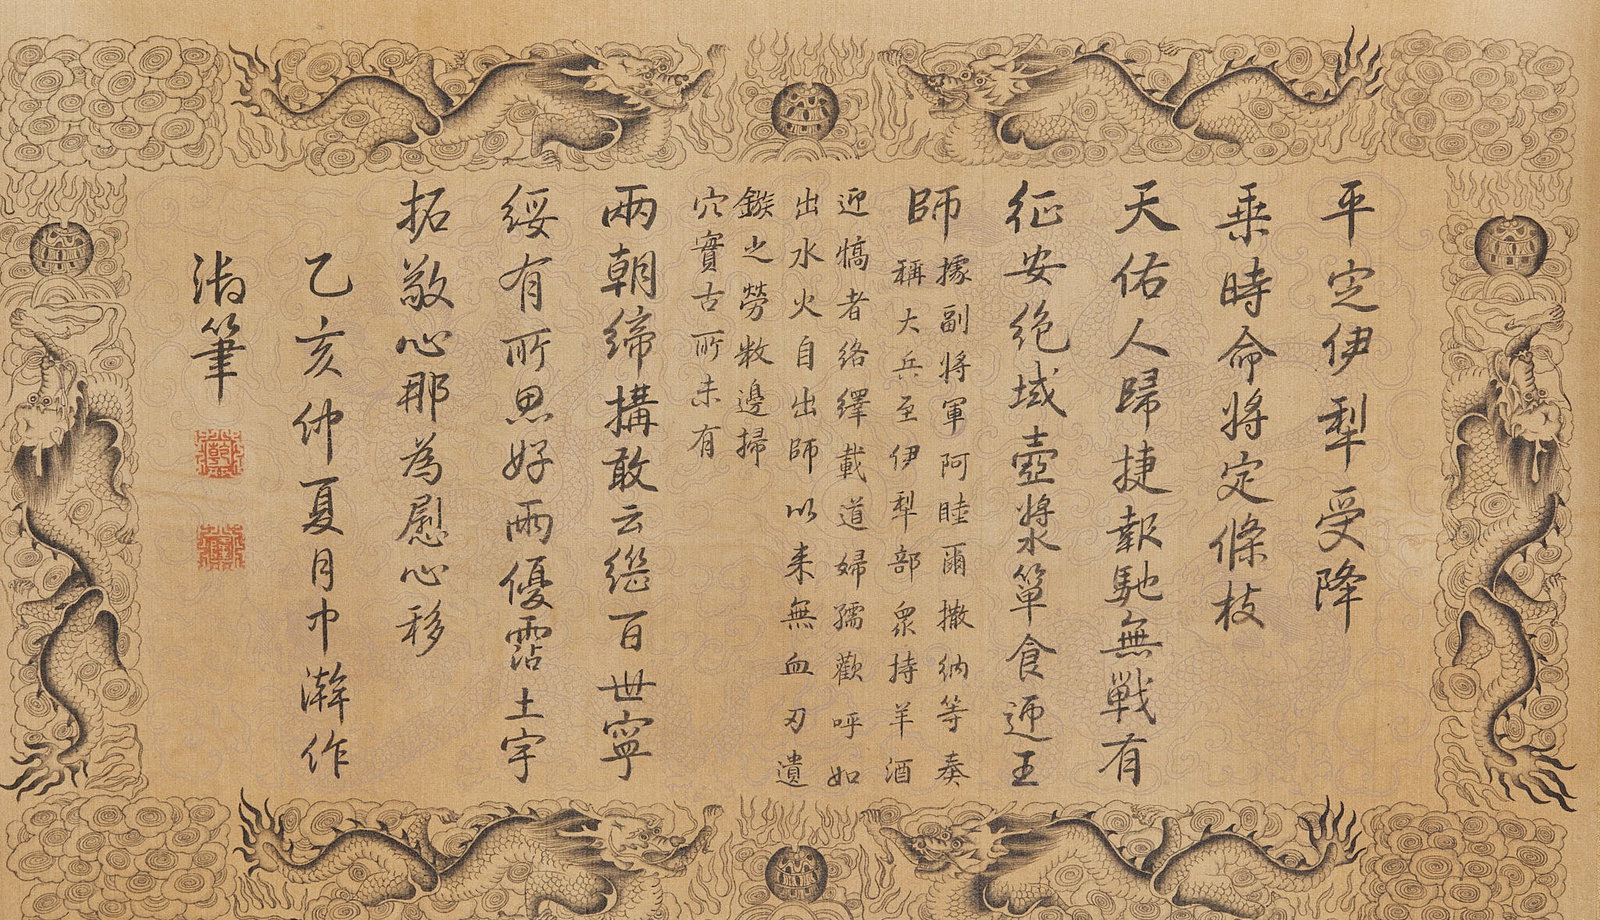 平定伊犁受降
乘時命將定條枝
天佑人歸捷報馳無戰有
征安絶域壺漿簞食迎王
師
據副將軍阿睦爾撒納等奏
稱大兵至伊犁部衆持羊酒
迎犒者絡繹載道婦孺歡呼如
出水火自出師以來無血刃遺
鏃之勞敉邊掃
穴實古所未有
兩朝締搆敢云繼百世寧
綏有所思好雨優霑土宇
拓敬心那為慰心移
乙亥仲夏月中澣作
御筆